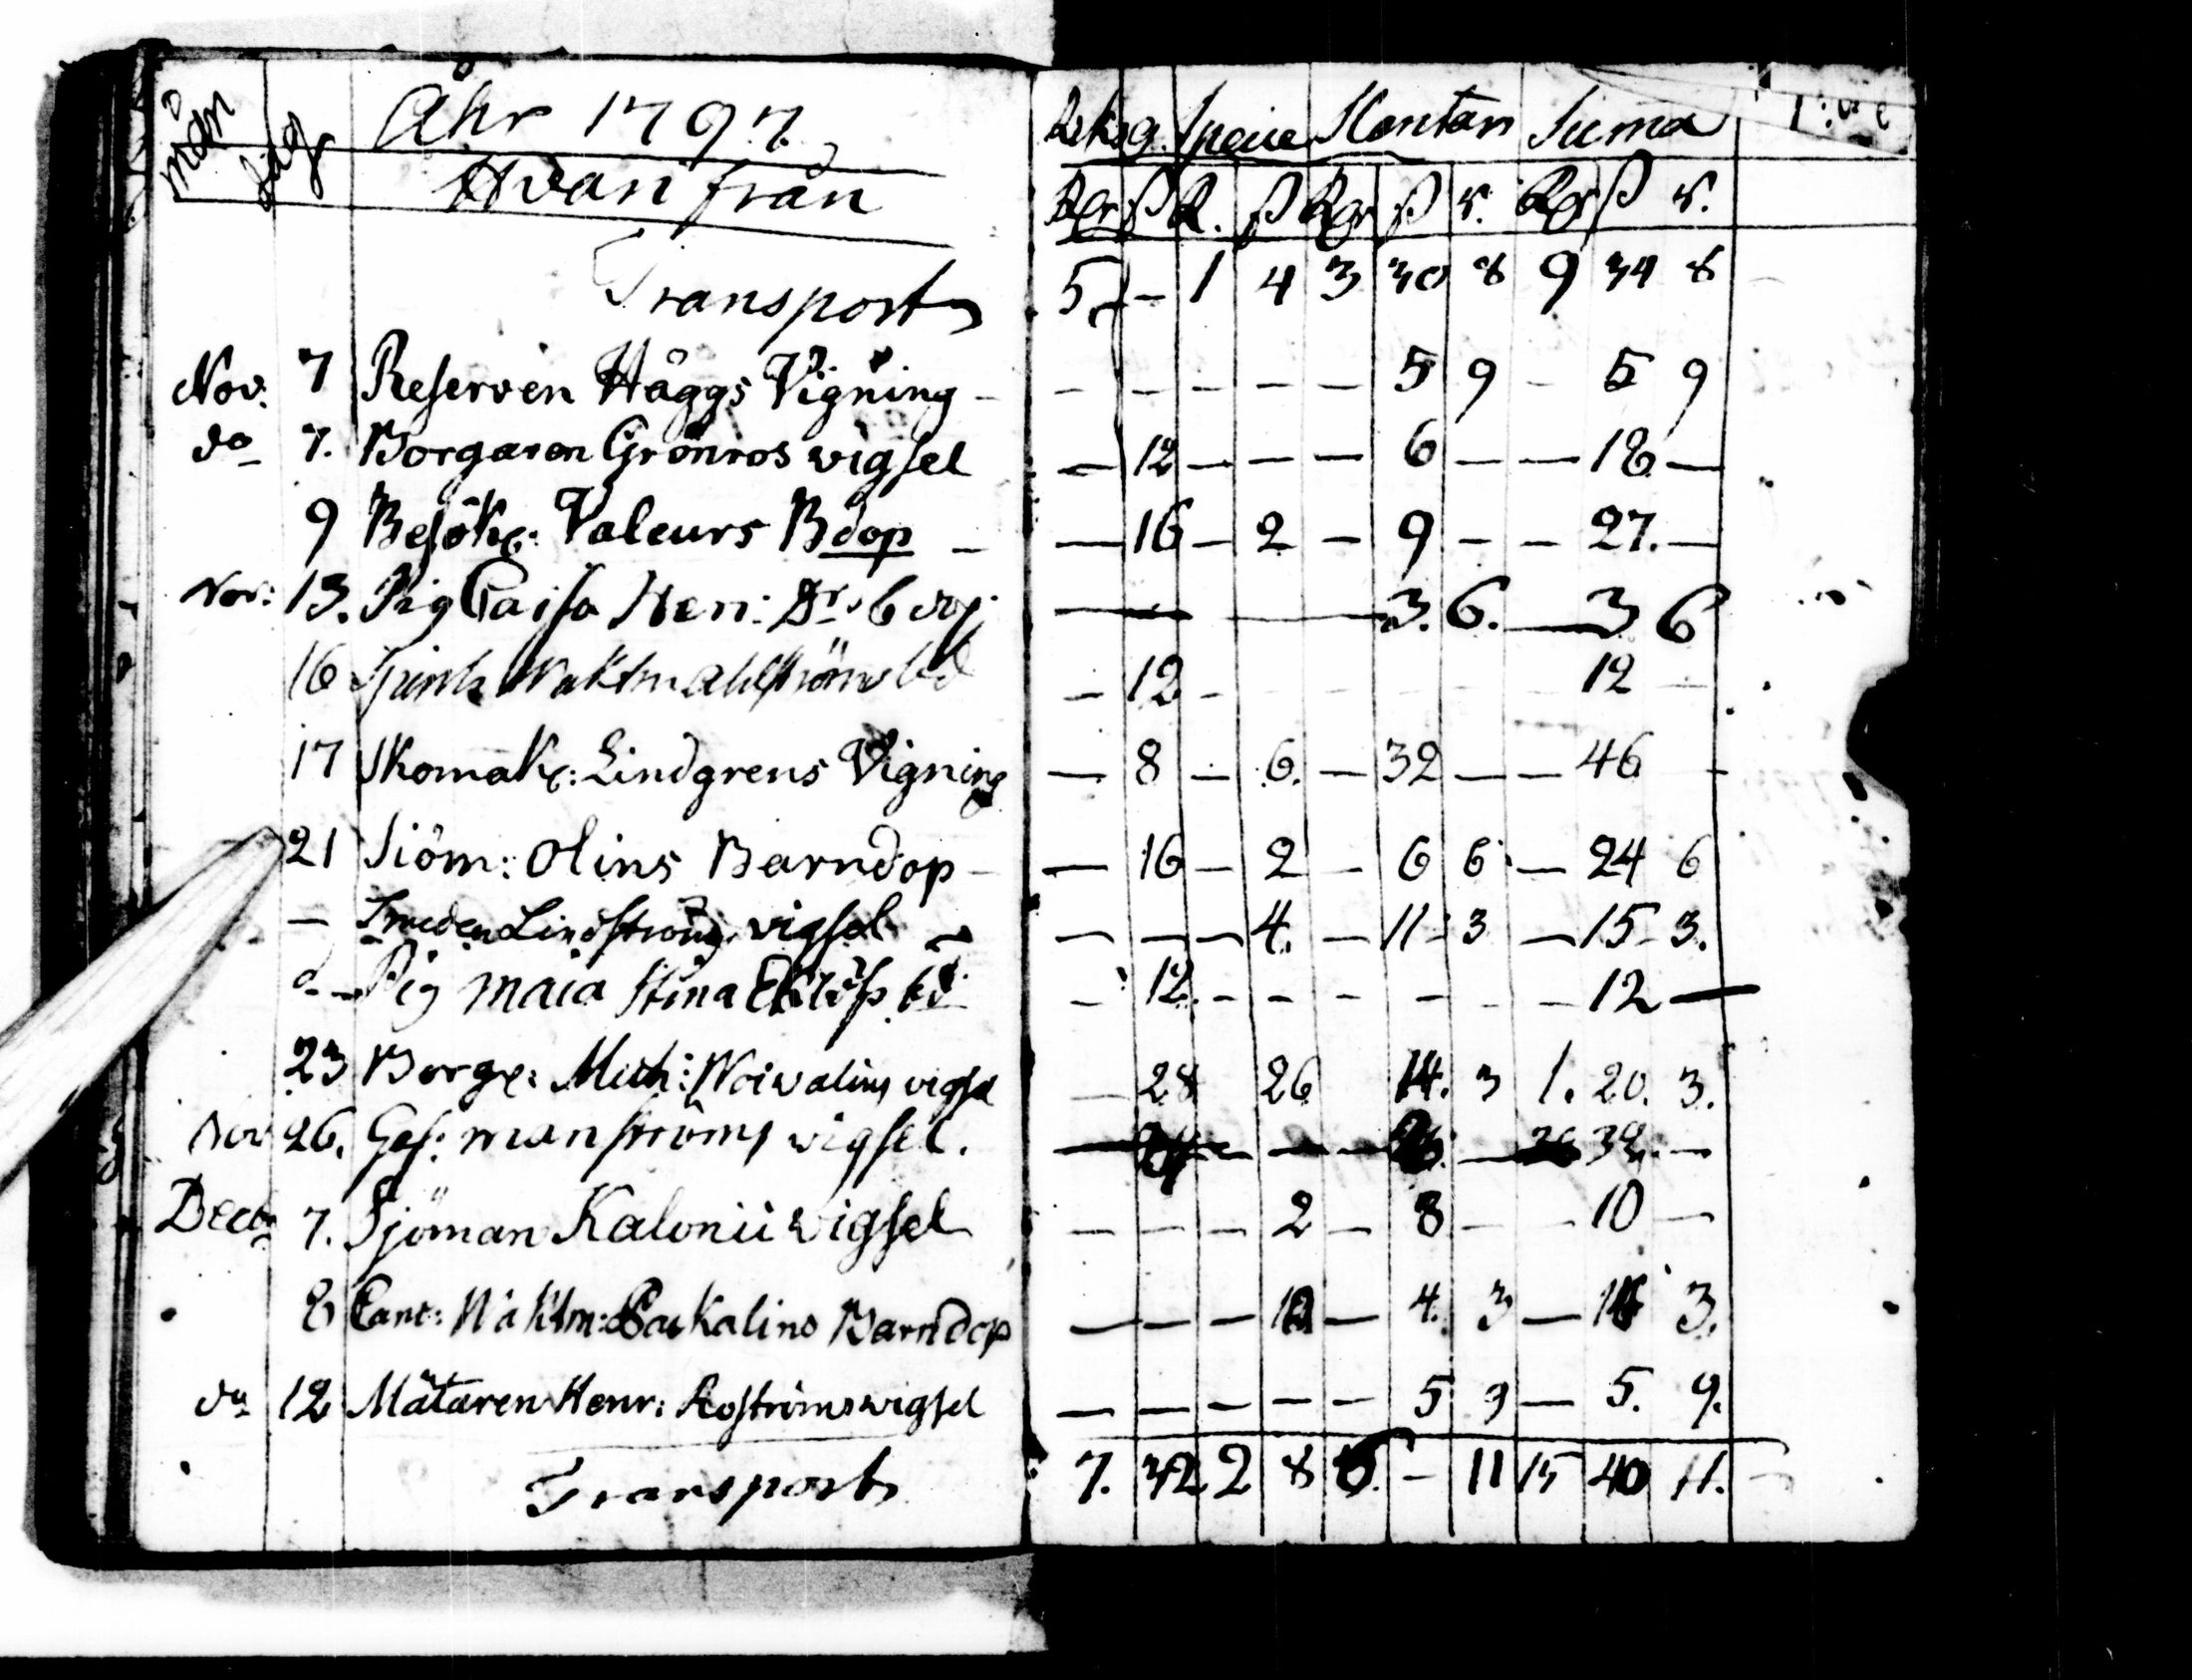 Mån dag Åhr 1797. Riksg. Specie Contan Suma
Hvari från Rdr ß R. ß Rdr ß r. Rdr ß r.
Transport 5 – 1 4 3 30 8 9 34 8
Nov. 7 Reserven Häggs Vigning – – – – – – 5 9 – 5 9
do 7. Borgaren Grönros wigsel – 12 – – – 6 – – 18 –
9 Besök: Valeurs Bdop – – 16 – 2 – 9 – – 27. –
Nov: 13. Pig Caisa Hen: Dr bdop – – – 3. 6. – 3 6
16 – 12 – 12 –
17 Skomak: Lindgrens Vigning – 8 – 6. – 32 – – 46 –
21 Siöm: Olins Barndop – – 16 – 2 – 6 6 – 24 6
– Smeden Lindströms vigsel – – – 4. – 11 3 – 15 3.
d – Pig Maia Stina Eklöfs bd – 12. – – – – – – 12 –
23 Borg: Mich: Noivalins vigsel – 28 26 14. 3 1. 20. 3.
Nov 26. Ges: Manströms vigsel. – – – – – 38. –
Decb 7. Sjöman Kalonii vigsel – – – 2 – 8 – – 10 –
8 Waktm: Barndop – – – – 4. 3 – 3.
do 12 Mätaren Henr: Roströms vigsel – – – – – 5 9 – 5. 9.
Transport 7. 32 2 8 5. – 11 15 40 11. –